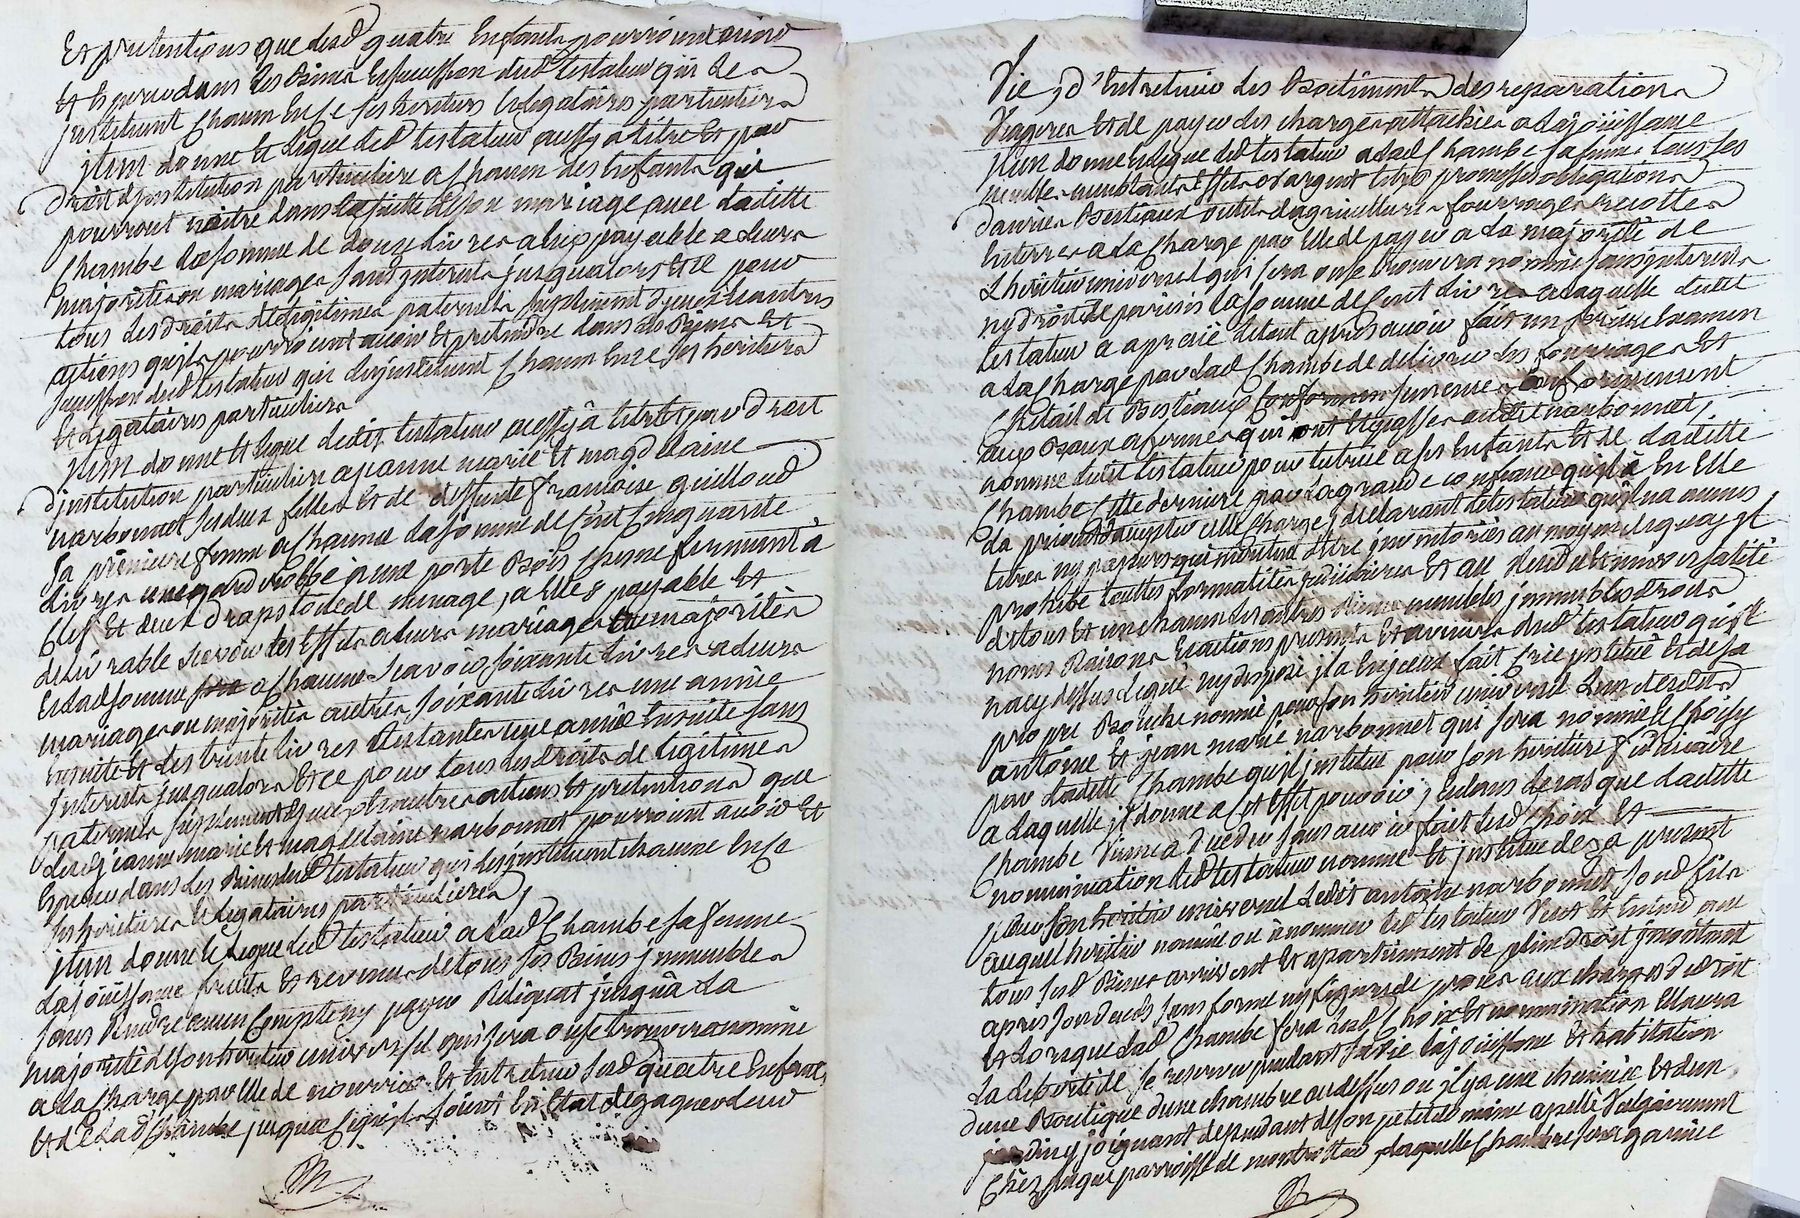 Et pretentions que lesd quatre Enfants pourroient avoir
Et Esperer dans les Biens Et succession dud testateur qui les
jnstituent Chacun En Ce ses heritiers Et legataires particuliers
jtem donne Et legue led testateur aussy a titre Et par
droit d'jnstitution particuliere a Chacun des Enfants qui
pourront naitre dans la suitte de son mariage avec laditte
Chambe la somme de douze livres a eux payable a leurs
majorités ou mariages sans jnterets jusqu'alors Et Ce pour
tous les droits de legitimes paternels suplement d'yceux Et autres
actions qu'jls pourroient avoir Et pretendre dans les Biens Et
succession dud testateur qui les jnstituent Chacun En Ce ses heritiers
Et legataires particuliers
jtem donne Et legue ledit testateur aussy à titre Et par droit
d'jnstitution particuliere a jeanne marie Et magdelaine
narbonnet ses deux filles Et de deffunte françoise guilloud
sa premiere femme a Chacune la somme de Cent Cinquante
livres une garde robbe june porte Bois Chesne fermant à
Clef Et deux draps toile de menage, a Elles payable Et
delivrable scavoir les Effets a leurs mariages ou majorités
Et lad somme a Chacune scavoir soixante livres a leurs
mariages ou majorités autres soixante livres une année
Ensuite Et les trente livres Restantes une année Ensuite sans
jnterets jusqu'alors Et Ce pour tous les droits de legitimes
paternels suplement d'yceux Et autres actions Et pretentions que
lesd jeanne marie Et magdelaine narbonnet pourroient avoir Et
Esperer dans les Biens dud testateur qui les jnstituent Chacune En Ce
ses heritieres Et legataires particulieres /
jtem donne Et legue led testateur a lad Chambe sa femme
la jouissance fruits Et revenus de tous ses Biens jmmeubles
sans Rendre aucun Compte ny payer Reliquat jusqu'à la
majorité de son heritier universel qui sera ou se trouvera nommé
a la Charge par Elle de nourrir Et Entretenir sesd quatre Enfants
Et de lad Chambe jusqu'à Ce qu'jls soient En Etat de gagner leur
Vie, d'Entretenir les Batiments des reparations
Viageres Et de payer les charges attachées a la jouissance
jtem donne Et legue led testateur a lad Chambe sa femme tous ses
meubles meublants Effets Et argent titres promesses obligations
danrées Bestiaux outils d'agriculture fourrages recoltes
En terres a la Charge par Elle de payer a la majorité de
L'héritier universel qui sera ou se trouvera nommé sans jnterets
ny droit de parisis la somme de Cent livres a laquelle ledit
testateur a aprecié le tout aprés avoir fait un serieux Examen
a la Charge par lad Chambe de delivrer les fourrages Et
Chetail de Bestiaux conformement
aux Beaux a fermes qui ont Eté passés audit narbonnet,
nomme ledit testateur pour tutrice a ses Enfants Et de laditte
Chambe Cette derniere par la grande confiance qu'jl à En Elle
la priant d'accepter cette Charge, declarant le testateur qu'jl n'a aucuns
titres ny papiers qui meritent d'etre jnventoriés au moyen de quoy jl
prohibe touttes formalités judiciaires Et au Residu Et universalité
de tous Et un chacun les autres Biens meubles jmmeubles droits
noms Raisons Et actions presents Et avenirs dud testateur qu'jl
n'a cy dessus legué ny disposé jl a En jceux fait Crée jnstitué Et de sa
propre Bouche nommé pour son heritier universel L'un desdits
antoine Et jean marie narbonnet qui sera nommé Et choisy
par laditte Chambe qu'jl jnstitue pour son heritiere fidéiciaire
a laquelle jl donne a Cet Effet pouvoir; Et dans le cas que laditte
Chambe Vienne à déceder sans avoir fait led Choix Et
nomination led testateur nomme Et jnstitue des a present
pour son heritier universel Ledit antoine narbonnet son d fils
auquel heritier nommé ou à nommer led testateur Veut Et Entend que
tous sesd Biens arrivent Et apartiennent de plein droit jncontinant
apres son deces sans forme ny figure de procés aux charges de droit
Et Lorsque lad Chambe fera led Choix Et nomination Elle aura
la Liberté de se reserver pendant sa vie la jouissance Et habitation
d'une Boutique d'une chambre au dessus ou jl y a une cheminée Et d'un
jardin y joignant dependant de son petit domaine apellé Valgairement
Chez paque parroisse de montrottier, laquelle Chambre sera garnie